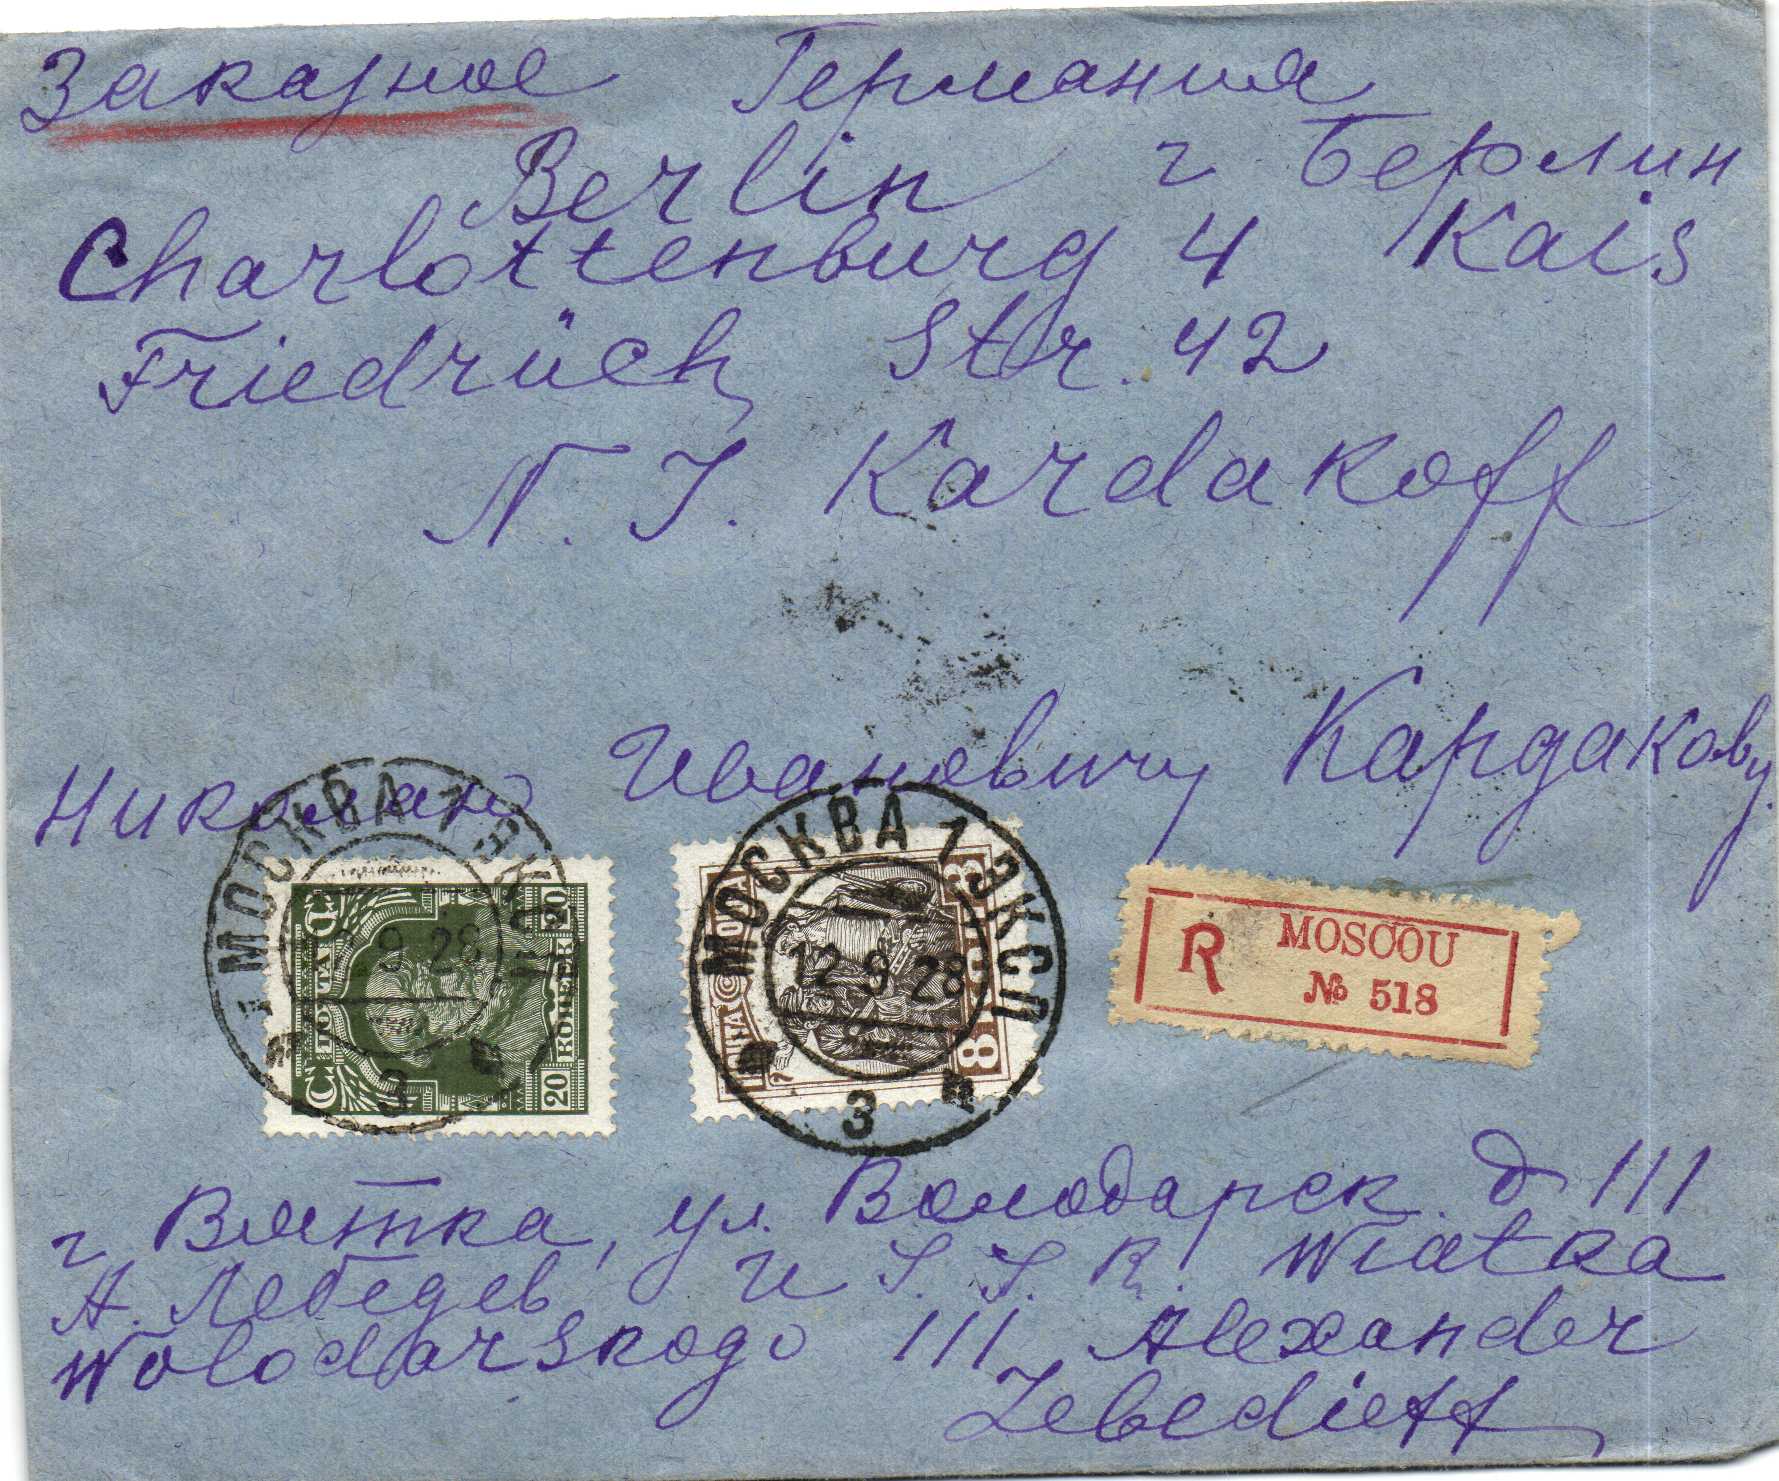 Заказное Германия
Berlin г Берлин
Charlottenburg 4 Kais
Friedrüch Str. 42
N. J. Kardakoff
Николаю Ивановичу Кардакову
МОСКВА 1 ЭКСП
12 9 28
З
ПОЧТА
20 КОПЕЕК 20
МОСКВА 1 ЭКСП
12 9 28
З
ПОЧТА
8 КОП 8
R MOSCOU
№ 518
г Вятка, ул. Володарск. д 111
А. Лебедев U S. S. R. Wiatka
Wolodarskogo 111 Alexander
Lebedieff